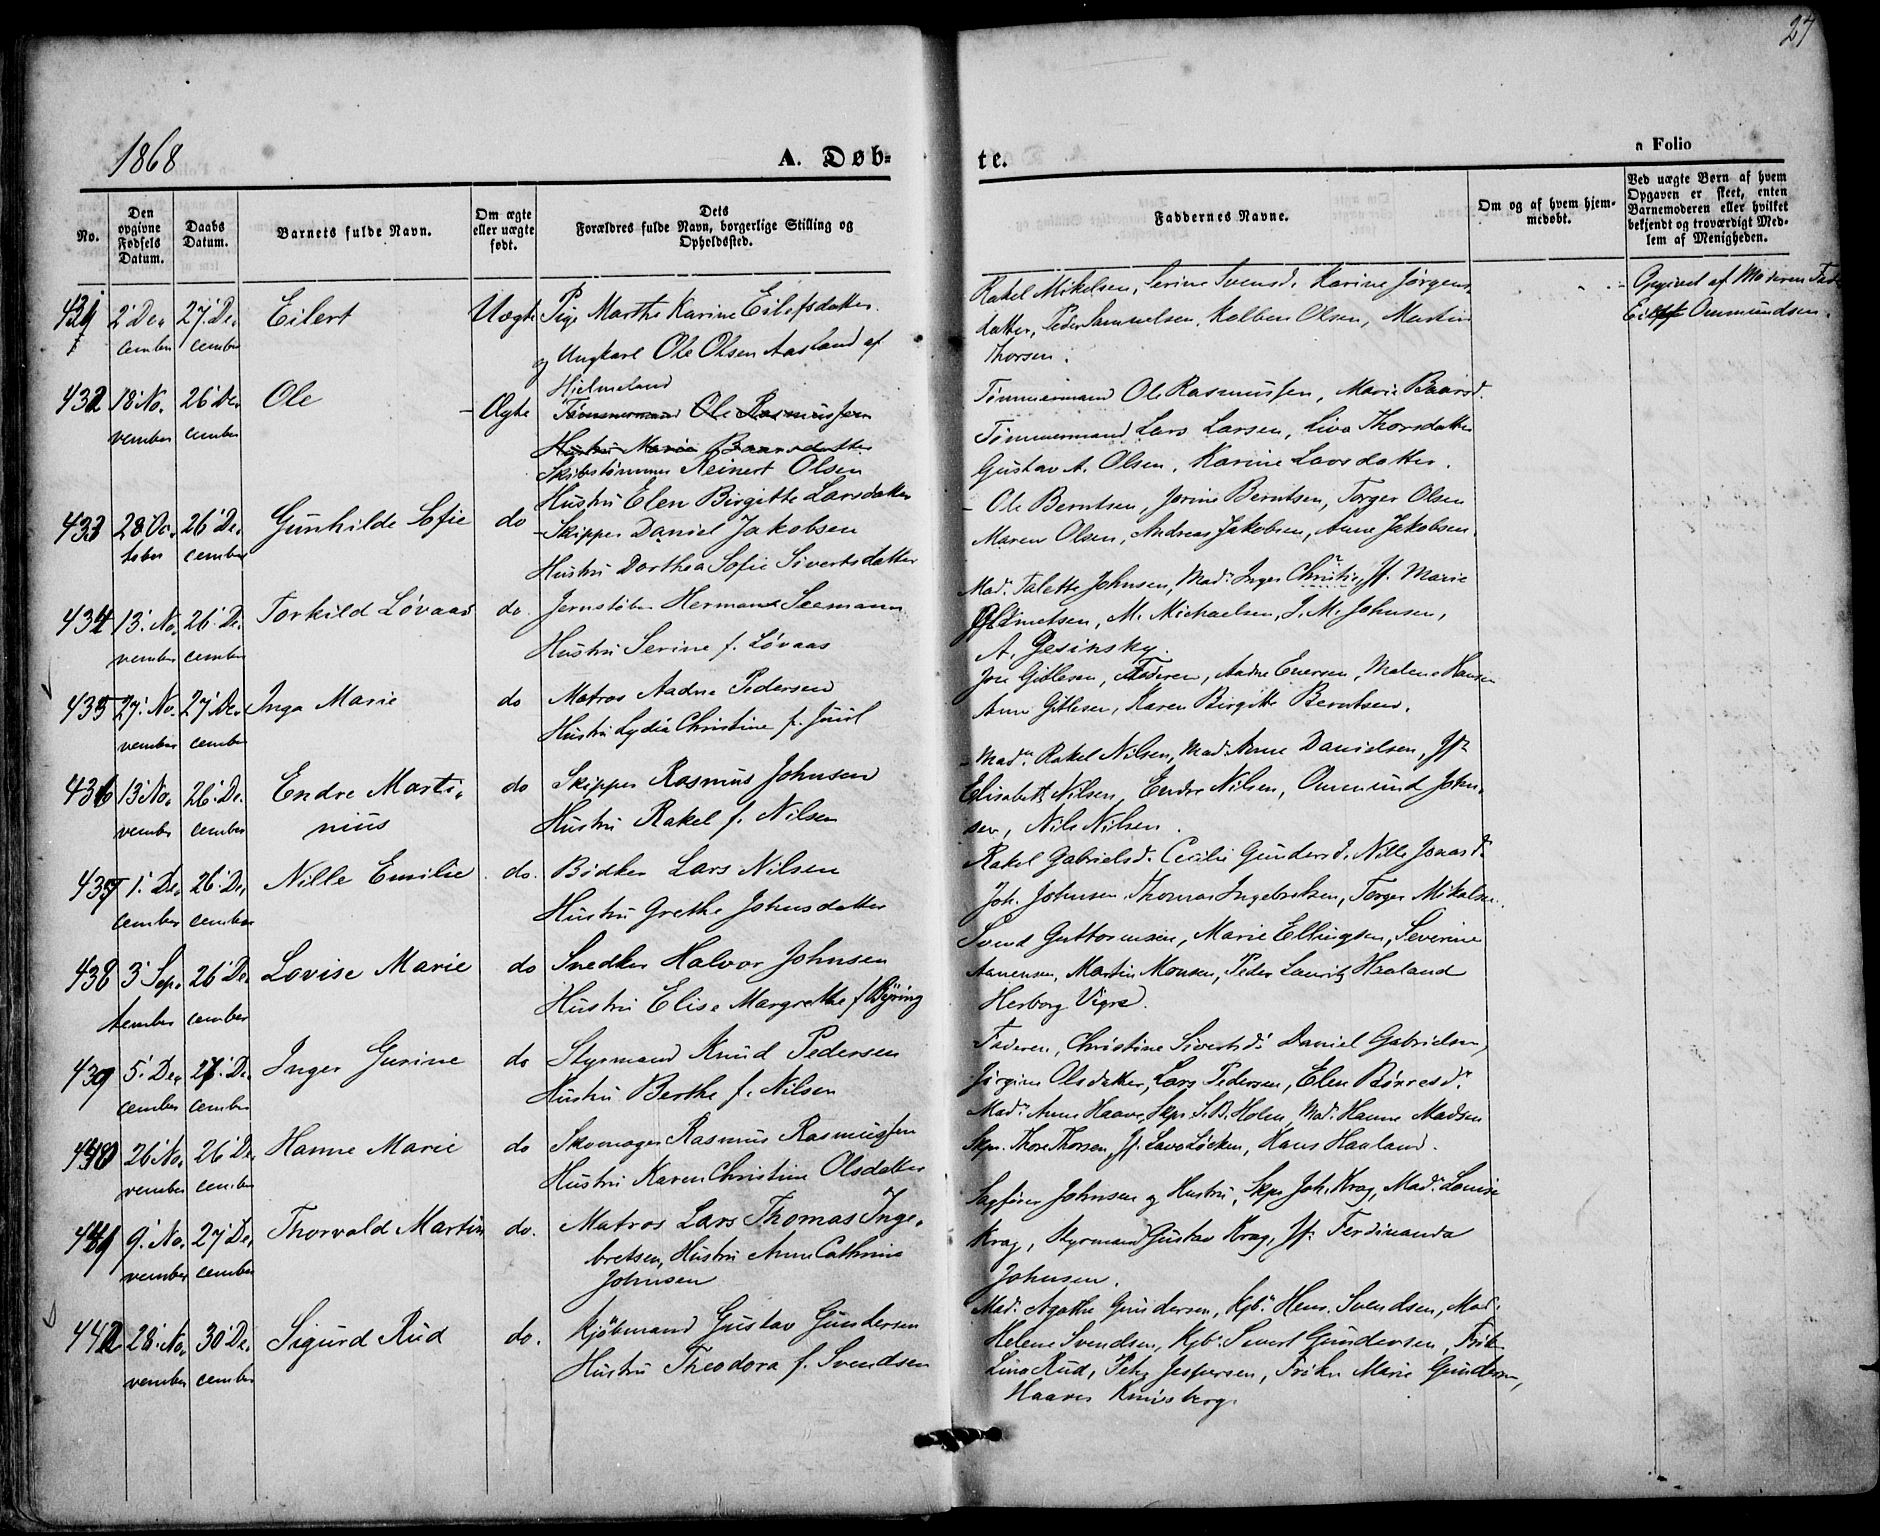 27
1868
A. Døb-
te.
n Folio
No.
Den opgivne Fødsels Datum.
Daabs Datum.
Barnets fulde Navn.
Om ægte eller uægte født.
Dets Forældres fulde Navn, borgerlige Stilling og Opholdssted.
Faddernes Navne.
Om og af hvem hjemmedøbt.
Ved uægte Børn af hvem Opgaven er skeet, enten Barnemoderen eller hvilket bekjendt og troværdigt Medlem af Menigheden.
431 2' December 27' December Eilert Uægte Pige Marthe Karine Eilefsdatter
og Ungkarl Ole Olsen Aasland af
Hjelmeland
Rakel Mikelsen, Serine Svensd. Karine Jørgens
datter, Peder Samuelsen, Kolben Olsen, Martin
Thorsen.
Opgivet af Moderens Fader
Ommundsen.
432 18' November 26' December Ole Ægte Tømmermand Ole Rasmussen
Hustru Maria Baarsdatter
Skibstømmer Reinert Olsen
Hustru Elen Birgitte Larsdatter
Tømmermand Ole Rasmussen, Marie Baarsd.
Tømmermand Lars Larsen, Liva Thorsdatter
Gustav A. Olsen, Karine Larsdatter.
433 28' October 26' December Gunhilde Sofie do Skipper Daniel Jakobsen
Hustru Dorthea Sofie Sivertsdatter
Ole Berntsen, Jorine Berntsen, Torger Olsen
Maren Olsen, Andreas Jakobsen, Anne Jakobsen.
434 13' November 26' December Torkild Løvaas do. Jernstøber Herman Seemann
Hustru Serine f. Løvaas
Mad. Talette Johnsen, Mad. Inger Christie, Jf. Marie
M. Michaelsen, J. M. Johnsen,
A. Gesinsky.
435 27' November 27' December Inga Marie do Matros Aadne Pedersen
Hustru Lydia Christine f. Juul
Joe Gitlesen, Faderen, Aadne Enersen, Malene Hansen
Anne Gitlesen, Karen Birgitte Berntsen.
436 13' November 26' December Endre Martinius do Skipper Rasmus Johnsen
Hustru Rakel f. Nilsen
Mad. Rakel Nilsen, Mad. Anne Danielsen, Jf.
Elisabeth Nilsen, Endre Nilsen, Ommund John-
sen, Nils Nilsen.
437 1' December 26' December Nille Emilie do. Bødker Lars Nilsen
Hustru Grethe Johnsdatter
Rakel Gabrielsd. Cecilie Gundersd. Nille Jonasd.
Joh. Johnsen, Thomas Ingebretsen, Torger Mikalsen.
438 3' September 26' December Lovise Marie do Snedker Halvor Johnsen
Hustru Elise Margrethe f. Bjøring
Svend Guttormsen, Marie Ellingsen, Severine
Aanensen, Martin Monsen, Peder Lauritz Haaland
Herborg Vigre.
439 5' December 27' December Inger Gurine do Styrmand Knud Pedersen
Hustru Berthe f. Nilsen
Faderen, Christine Sivertsd. Daniel Gabrielsen,
Jørgine Olsdatter, Lars Pedersen, Elen Børresd.
440 26' November 26' December Hanne Marie do Skomager Rasmus Rasmussen
Hustru Karen Christine Olsdatter
Mad. Anne Haave, Skpr. S. B. Holm, Mad. Hanne Madsen
Skpr. Thore Thorsen, Jf. Lava Løcken, Hans Haaland.
441 9' November 27' December Thorvald Martin do. Matros Lars Thomas Inge-
bretsen, Hustru Anne Cathrine
Johnsen
Sagfører Johnsen og Hustru, Skpr Joh. Krag, Mad. Louise
Krag, Styrmand Gustav Krag, Jf. Ferdinanda
Johnsen.
442 28' November 30' December Sigurd Rud do. Kjøbmand Gustav Gundersen
Hustru Theodora f. Svendsen
Mad. Agathe Gundersen, Kjb. Hens. Svendsen, Mad.
Helene Svendsen, Kjb. Sivert Gundersen, Frøken
Lina Rud, Petr. Jespersen, Frøken Marie Gundersen,